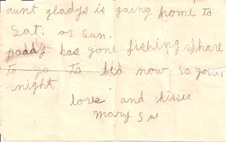 aunt gladys is going home to
Sat. or Sun.
has gone fishing I have
to go to bed now so good
night
love and kisses
Mary Sue